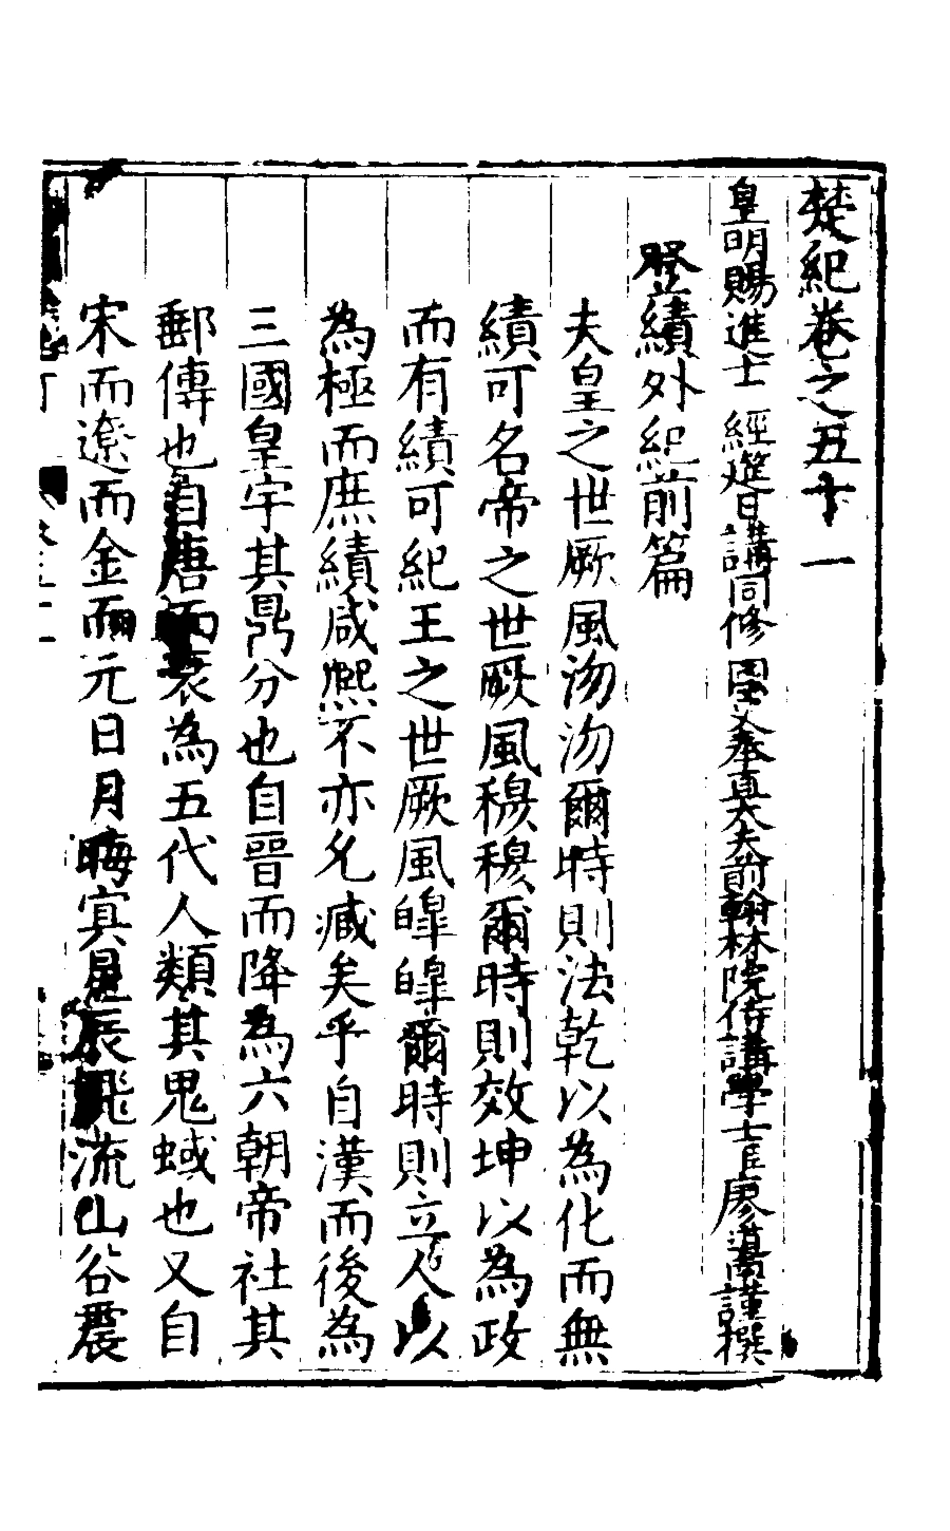 楚紀卷之五十一
皇明賜進士 經筵日講同修 國 奉直大夫前翰林院侍講學士臣廖道南謹撰
登績外紀前篇
夫皇之世厥風沕沕爾時則法乾以為化而無
績可名帝之世厥風穆穆爾時則效坤以為政
而有績可紀王之世厥風皡皡爾時則立人以
為極而庶績咸熈不亦允臧矣乎自漢而後為
三國皇宇其鼎分也自晉而降為六朝帝社其
郵傳也自唐而衰為五代人類其鬼蜮也又自
宋而遼而金而元日月晦寘星辰飛流山谷震